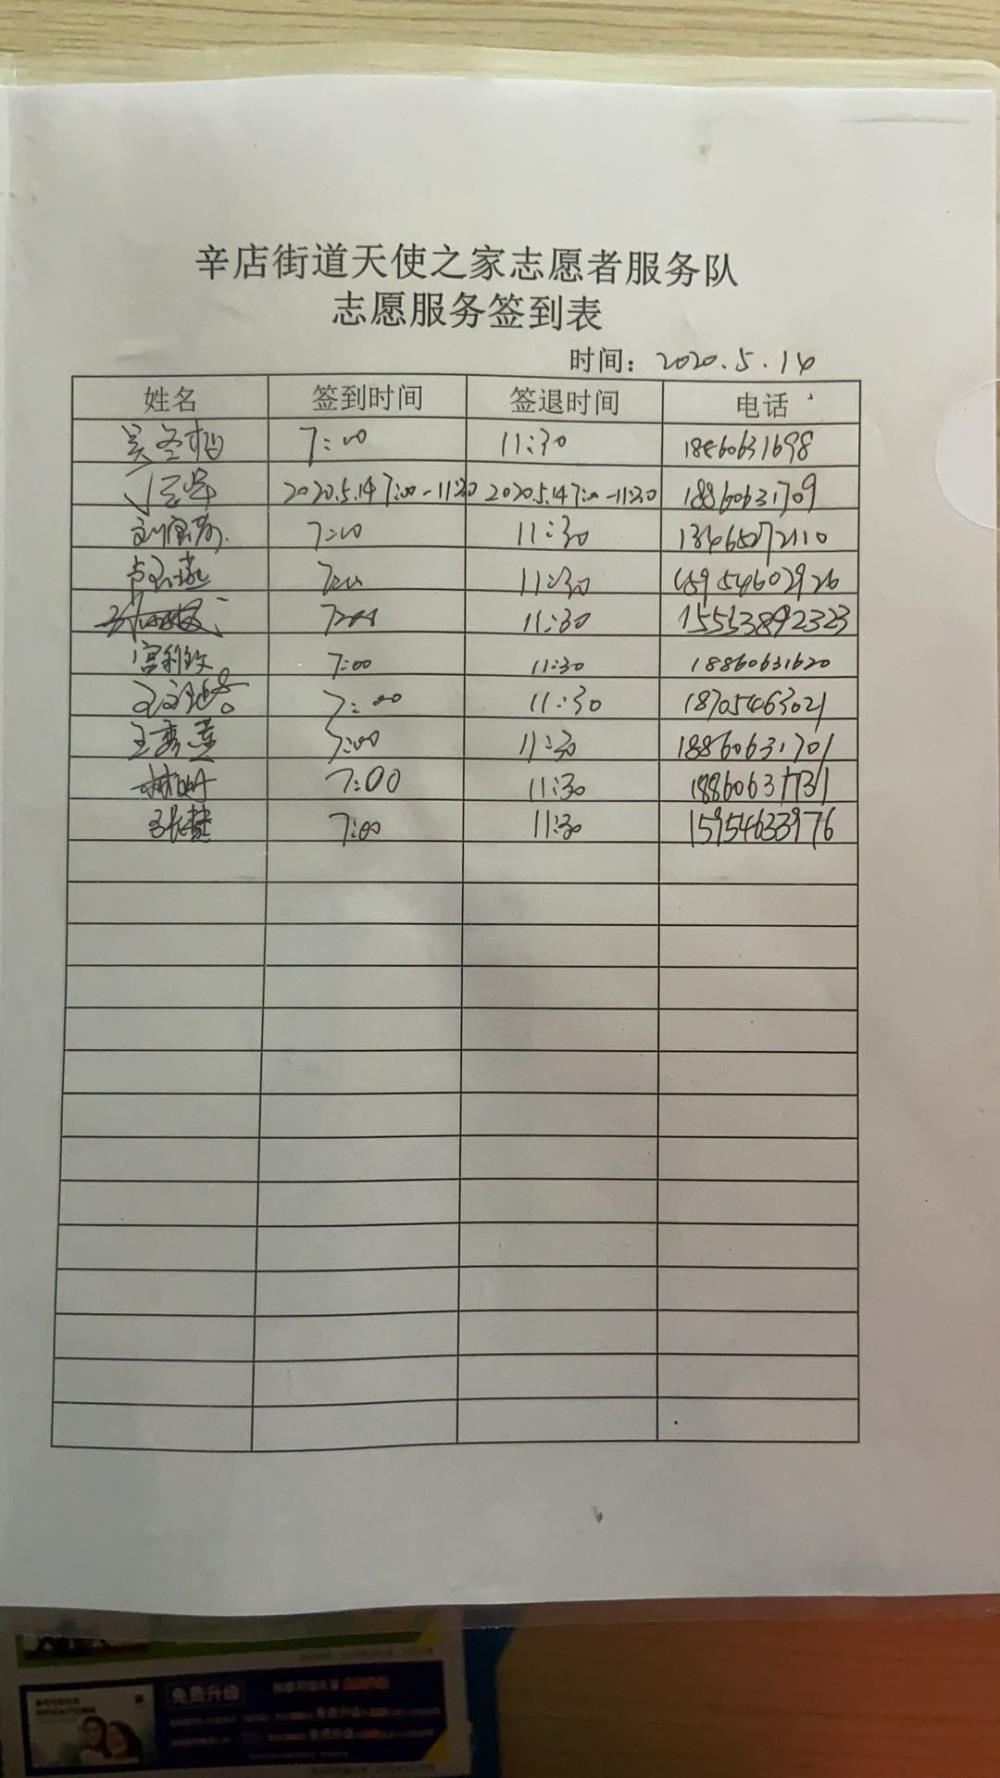 辛店街道天使之家志愿者服务队
志愿服务签到表
时间：2020.5.14
姓名 签到时间 签退时间 电话
吴冬梅 7:00 11:30 18860631698
2020.5.14 7:00-11:30 2020.5.14 7:00-11:30 18860631709
7:00 11:30 13465272110
7:00 11:30 15954602926
7:00 11:30 15553892323
宫利红 7:00 11:30 18860631620
7:00 11:30 18705463021
王秀莲 7:00 11:30 18860631701
7:00 11:30 18860631731
张楚 7:00 11:30 15954633976
免费升级